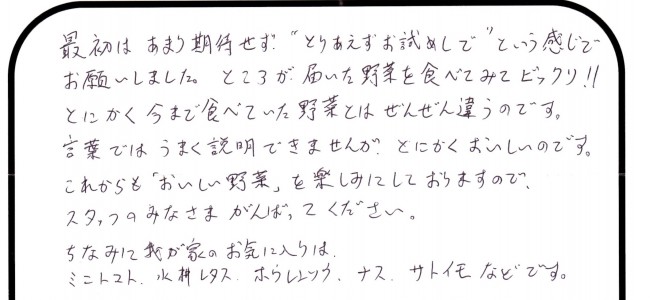 最初は あまり期待せず "とりあえずお試めしで"という感じで
お願いしました。ところが 届いた野菜を食べてみてビックリ!!
とにかく 今まで食べていた野菜とは ぜんぜん違うのです。
言葉では うまく説明できませんが、とにかくおいしいのです。
これからも「おいしい野菜」を楽しみにしておりますので、
スタッフのみなさま がんばってください。
ちなみに我が家のお気に入りは、
ミニトマト、水耕レタス、ホウレンソウ、ナス、サトイモ などです。